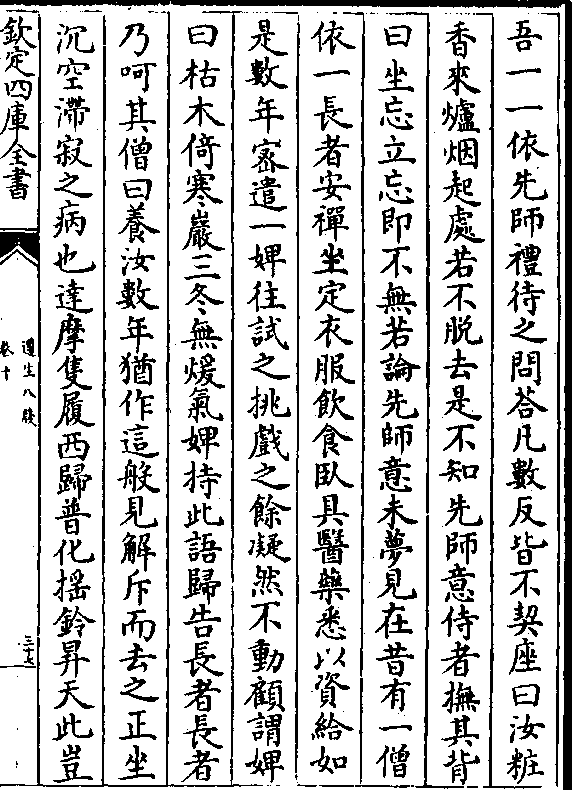 吾一一依先師禮待之問荅凡數反皆不契座曰汝粧
香來爐烟起處若不脱去是不知先師意侍者撫其背
曰坐忘立忘即不無若論先師意未夢見在昔有一僧
依一長者安禪坐定衣服飲食臥具醫藥悉以資給如
是數年宻遣一婢往試之挑戲之餘凝然不動顧謂婢
曰枯木倚寒巖三冬無煖氣婢持此語歸告長者長者
乃呵其僧曰養汝數年猶作這般見解斥而去之正坐
沉空滯寂之病也達摩隻履西歸普化揺鈴昇天此豈
欽定四庫全書
遵生八牋
卷十
三十七